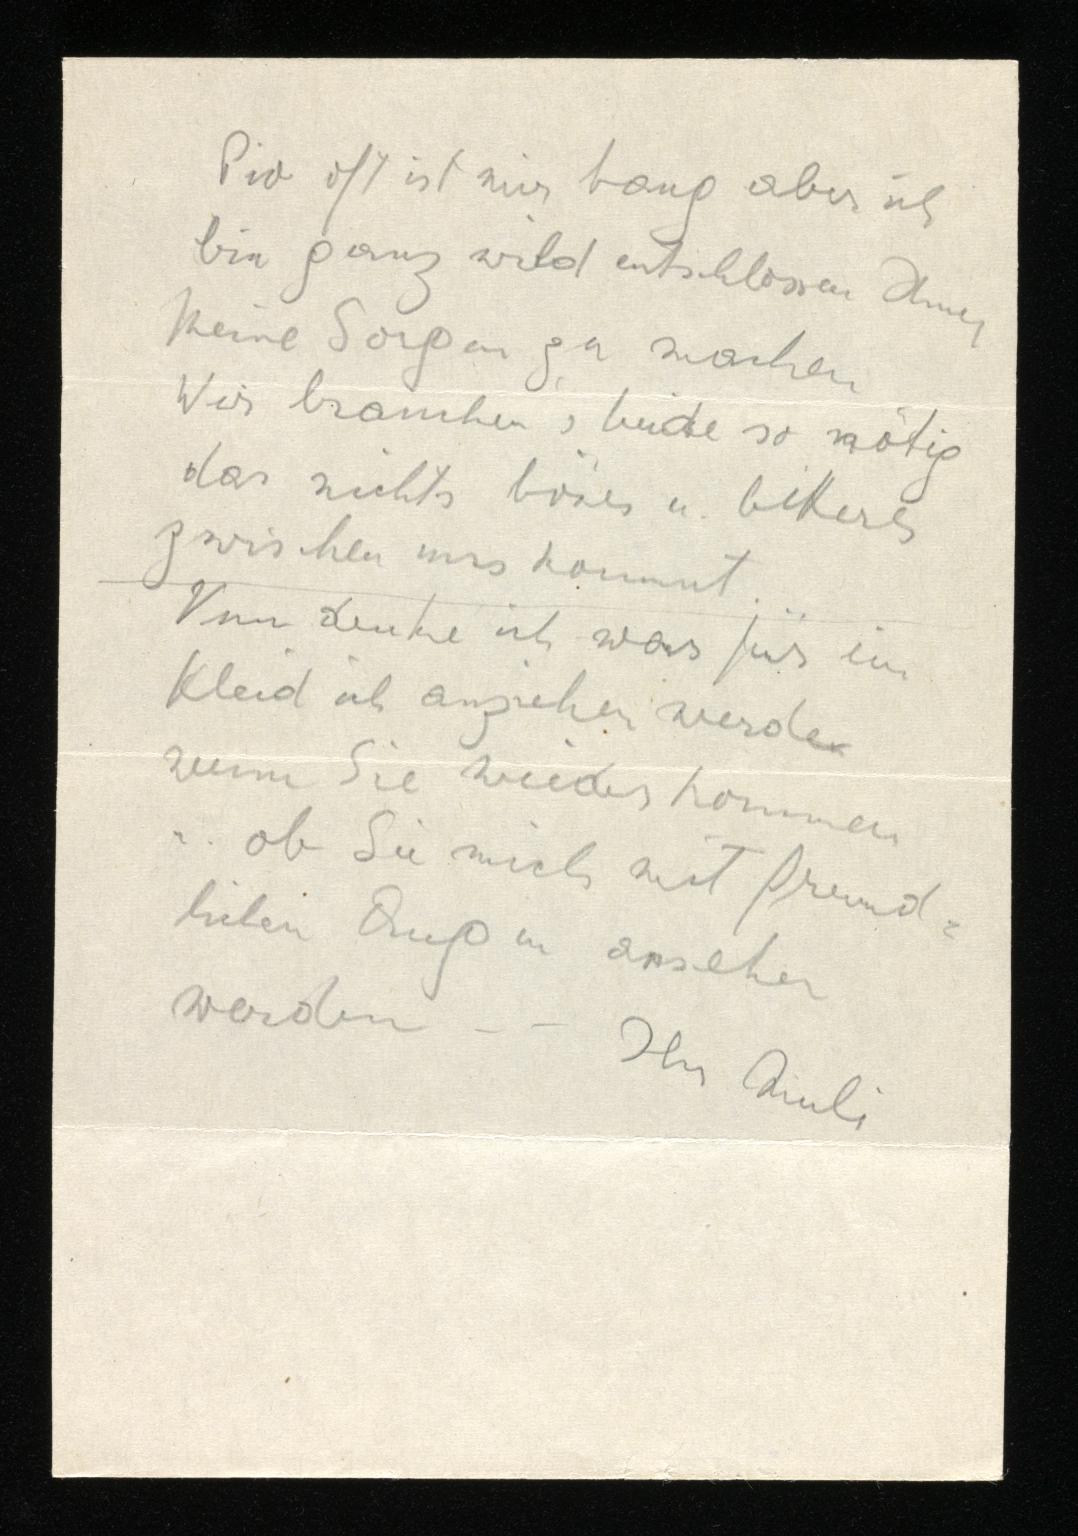 Pio oft ist mir bang aber ich
bin ganz wild entschlossen Ihnen
keine Sorgen zu machen
Wir brauchen's beide so nötig
das nichts böses u. bitteres
zwischen uns kommt.
Nun denke ich was für ein
Kleid ich anziehen werde
wenn Sie wieder kommen
u. ob Sie mich mit freund=
lichen Augen ansehen
werden – –
Ihr